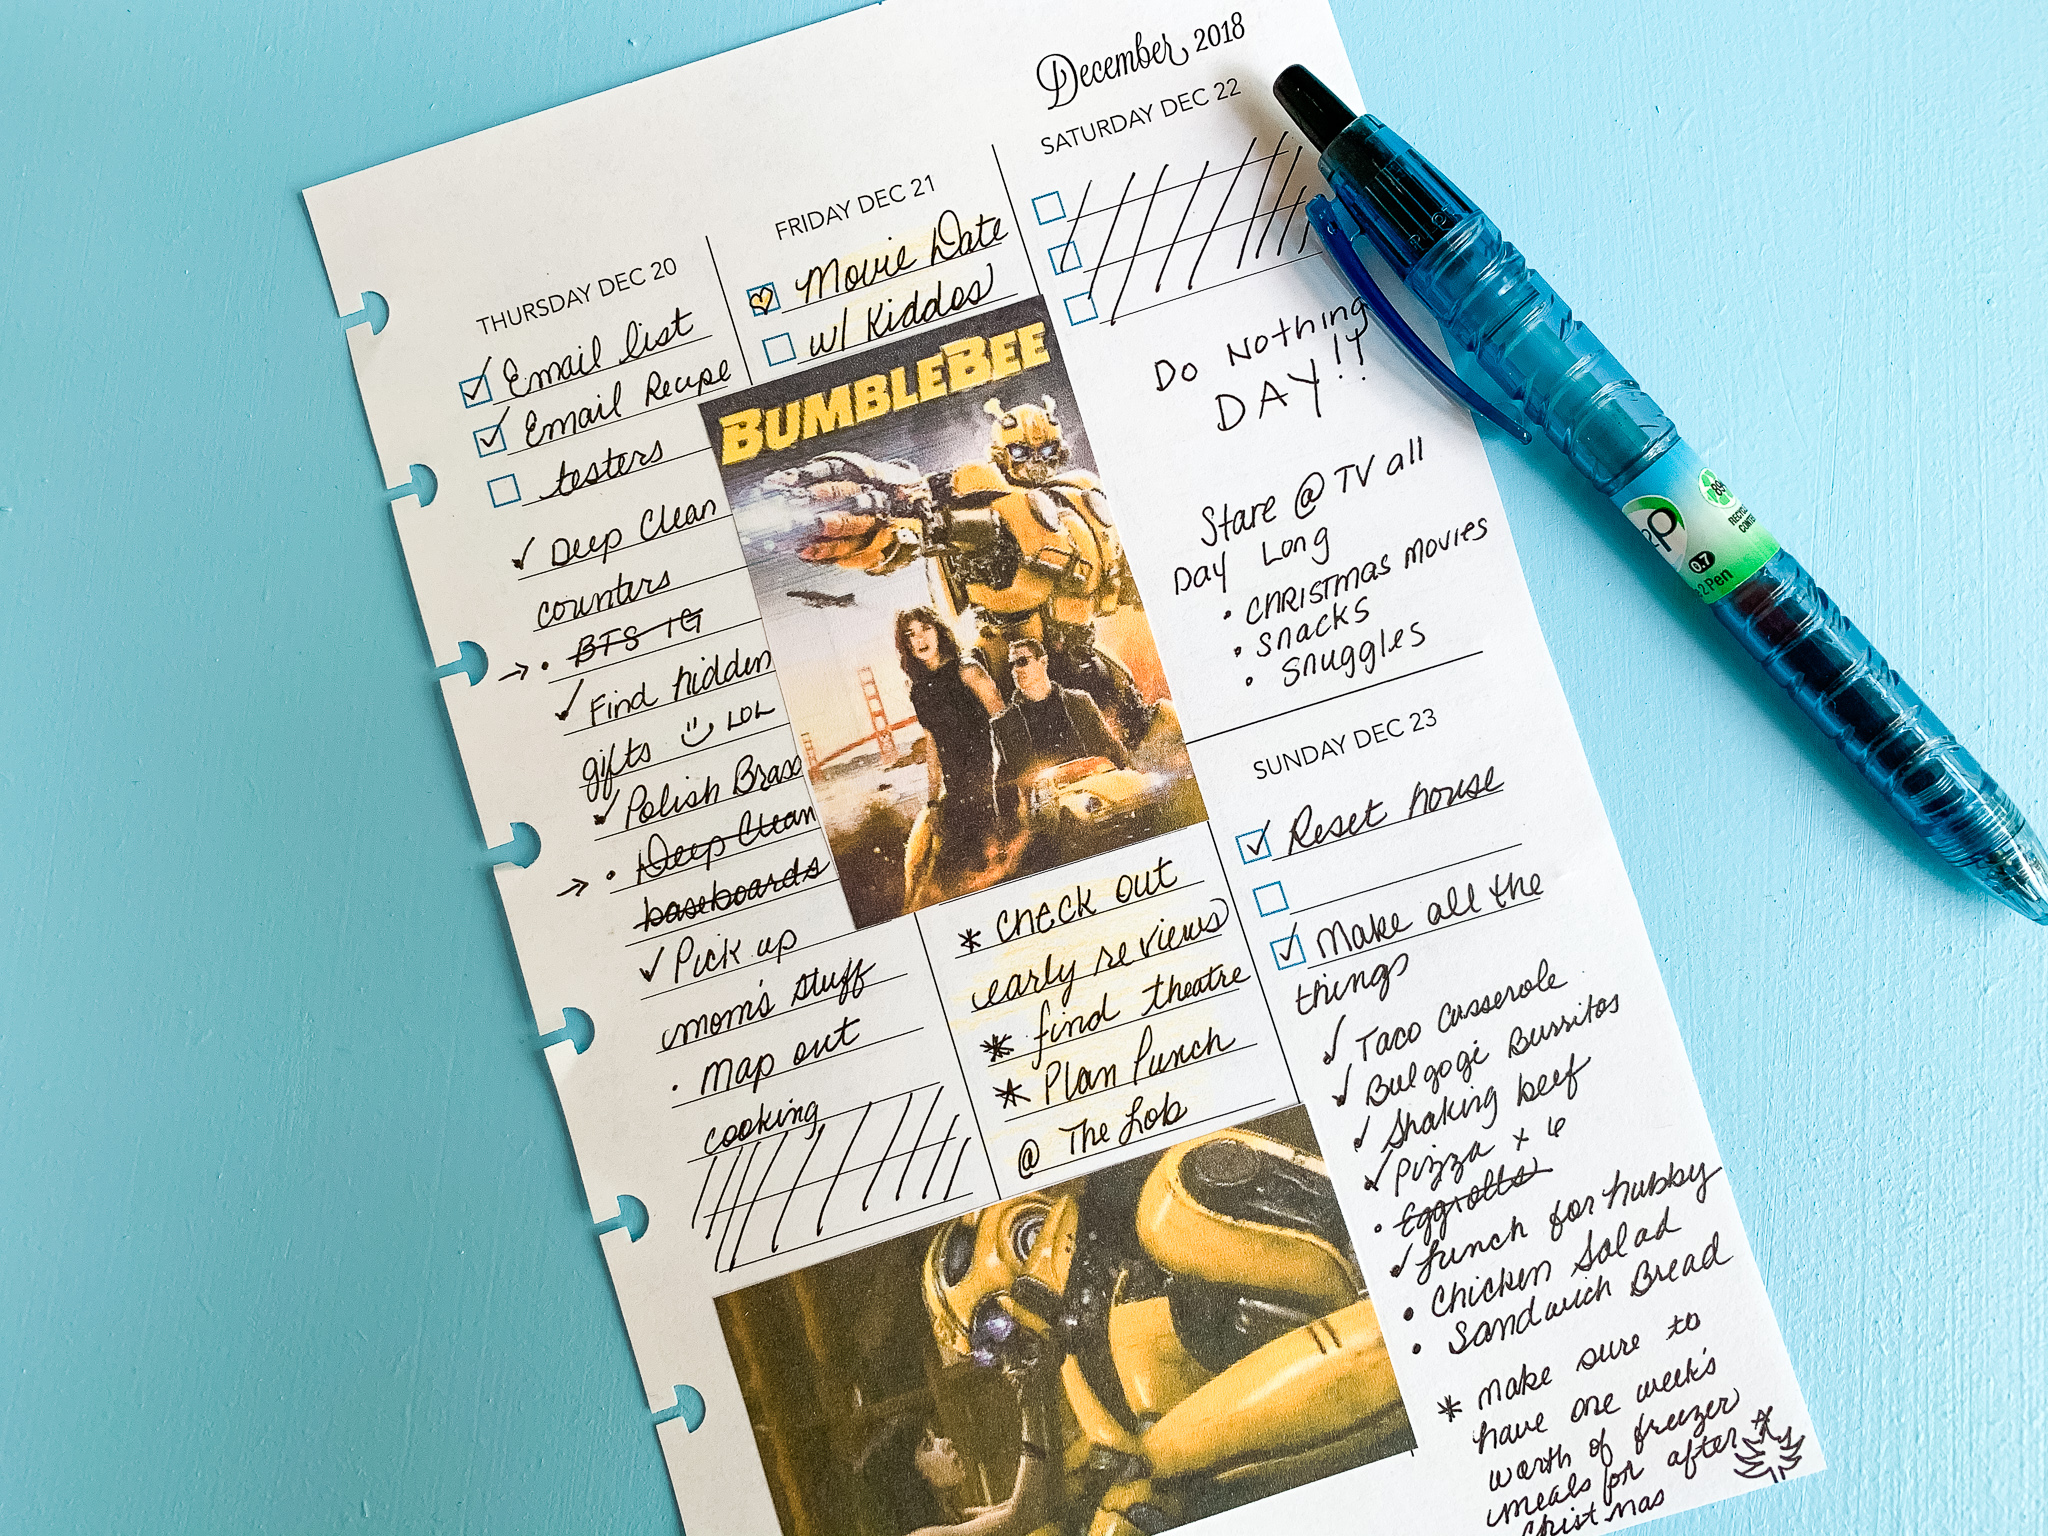 December 2018
THURSDAY DEC 20
Email list
Email Recipe
testers
Deep Clean
counters
BTS IG
Find hidden
gifts LOL
Polish Brass
Deep Clean
baseboards
Pick up
mom's stuff
Map out
cooking
FRIDAY DEC 21
Movie Date
w/ Kiddos
BUMBLEBEE
* Check out
early reviews
* find theatre
* Plan Punch
@ The Lob
SATURDAY DEC 22
DO NOTHING
DAY!!
Stare @ TV all
Day Long
• CHRISTMAS MOVIES
• SNACKS
• Snuggles
SUNDAY DEC 23
Reset house
Make all the
things
Taco Casserole
Bulgogi Burritos
Shaking beef
Pizza x 6
• Eggrolls
Lunch for hubby
• Chicken Salad
• Sandwich Bread
* Make sure to
have one week's
worth of freezer
meals for after
Christmas
PILOT
B2P
0.7
89%